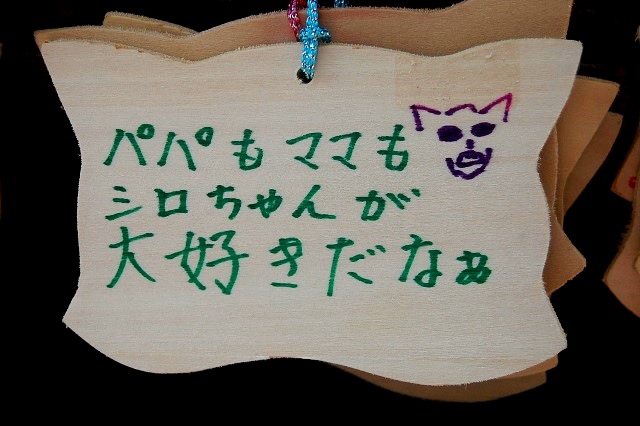 パパもママも
シロちゃんが
大好きだなぁ